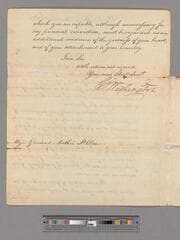 which you are capable, although unnecessary for
my personal conviction, must be regarded as an
additional evidence of the goodness of your heart
and of your attachment to your country.
I am Sir
With esteem and regard
Your most Obed. Serv.
G. Washington
Major General Arthur St. Clair